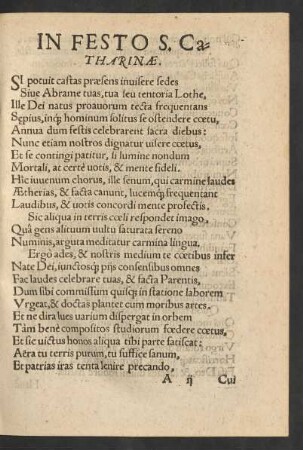 IN FESTO S. Ca-
THARINÆ.
SI potuit castas præsens inuisere sedes
Siue Abrame tuas, tua seu tentoria Lothe,
Ille Dei natus proauorum tecta frequentans
Sępius, inq́; hominum solitus se ostendere cœtu,
Annua dum festis celebrarent sacra diebus:
Nunc etiam nostros dignatur uisere cœtus,
Et se contingi patitur, si lumine nondum
Mortali, at certè uotis, & mente fideli.
Hic iuuenum chorus, ille senum, qui carmine laudes
Ætherias, & facta canunt, lucemq́; frequentant
Laudibus, & uotis concordi mente profectis.
Sic aliqua in terris cœli respondet imago,
Quà gens alituum uultu saturata sereno
Numinis, arguta meditatur carmina lingua.
Ergò ades, & nostris medium te cœtibus infer
Nate Dei, iunctosq́; prijs consensibus omnes
Fac laudes celebrare tuas, & facta Parentis,
Dum sibi commissum quisq́; in statione laborem
Vrgeat, & doctas plantet cum moribus artes.
Et ne dira lues uarium dispergat in orbem
Tàm benè compositos studiorum fœdere cœtus,
Et sic uictus honos aliqua tibi parte satiscat:
Aëra tu terris purum, tu suffice sanum,
Et patrias iras tenta lenire precando,
A ij Cui